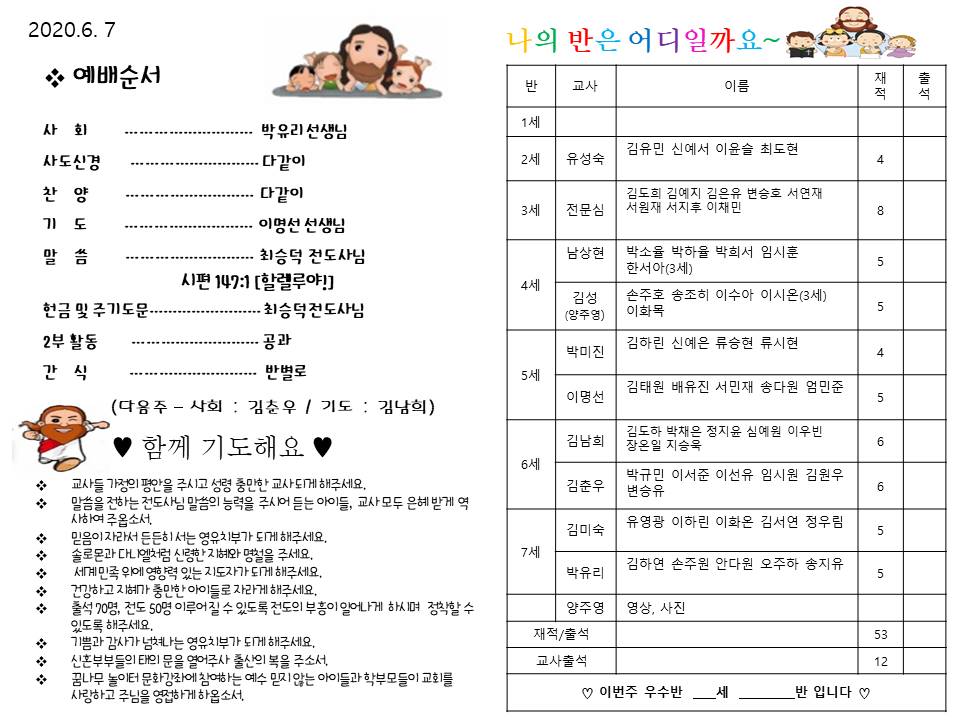 2020.6. 7
❖ 예배순서
사 회 --------------------------- 박유리 선생님
사도신경 --------------------------- 다같이
찬 양 --------------------------- 다같이
기 도 --------------------------- 이명선 선생님
말 씀 --------------------------- 최승덕 전도사님
시편 147:1 [할렐루야!]
헌금 및 주기도문------------------------ 최승덕전도사님
2부 활동 --------------------------- 공과
간 식 --------------------------- 반별로
(다음주 – 사회 : 김춘우 / 기도 : 김남희)
♥ 함께 기도해요 ♥
❖ 교사들 가정의 평안을 주시고 성령 충만한 교사 되게 해주세요.
❖ 말씀을 전하는 전도사님 말씀의 능력을 주시어 듣는 아이들, 교사 모두 은혜 받게 역
사하여 주옵소서.
❖ 믿음이 자라서 든든히 서는 영유치부가 되게 해주세요.
❖ 솔로몬과 다니엘처럼 신령한 지혜와 명철을 주세요.
❖ 세계 민족 위에 영향력 있는 지도자가 되게 해주세요.
❖ 건강하고 지혜가 충만한 아이들로 자라게 해주세요.
❖ 출석 70명, 전도 50명 이루어질 수 있도록 전도의 부흥이 일어나게 하시며 정착할 수
있도록 해주세요.
❖ 기쁨과 감사가 넘쳐나는 영유치부가 되게 해주세요.
❖ 신혼부부들의 태의 문을 열어주사 출산의 복을 주소서.
❖ 꿈나무 놀이터 문화강좌에 참여하는 예수 믿지 않는 아이들과 학부모들이 교회를
사랑하고 주님을 영접하게 하옵소서.
나의 반은 어디일까요~
반 교사 이름 재적 출석
1세
2세 유성숙 김유민 신예서 이윤슬 최도현 4
3세 전문심 김도희 김예지 김은유 변승호 서연재
서원재 서지후 이채민 8
4세 남상현 박소율 박하율 박희서 임시훈
한서아(3세) 5
김성 손주호 송조히 이수아 이시온(3세)
(양주영) 이화목 5
5세 박미진 김하린 신예은 류승현 류시현 4
이명선 김태원 배유진 서민재 송다원 엄민준 5
6세 김남희 김도하 박채은 정지윤 심예원 이우빈
장온일 지승욱 6
김춘우 박규민 이서준 이선유 임시원 김원우
변승유 6
7세 김미숙 유영광 이하린 이화온 김서연 정우림 5
박유리 김하연 손주원 안다원 오주하 송지유 5
양주영 영상, 사진
재적/출석 53
교사출석 12
♡ 이번주 우수반 ___세 ________반 입니다 ♡